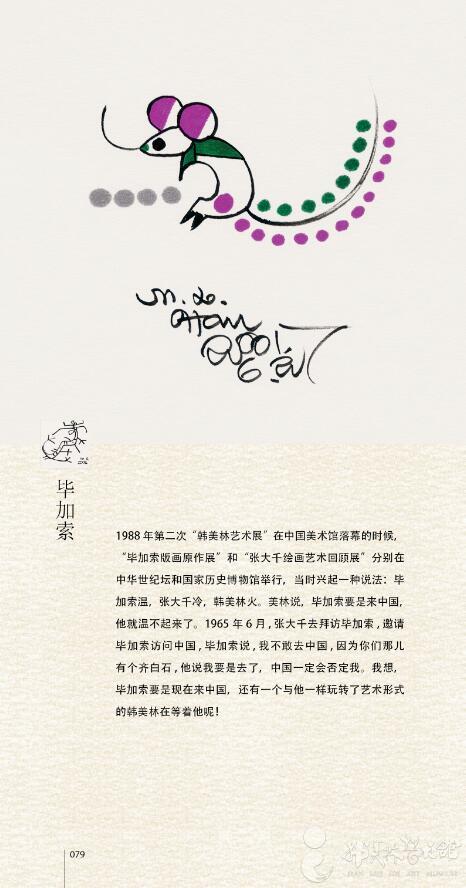 毕加索
1988年第二次“韩美林艺术展”在中国美术馆落幕的时候，
“毕加索版画原作展”和“张大千绘画艺术回顾展”分别在
中华世纪坛和国家历史博物馆举行，当时兴起一种说法：毕
加索温，张大千冷，韩美林火。美林说，毕加索要是来中国，
他就温不起来了。1965年6月，张大千去拜访毕加索，邀请
毕加索访问中国，毕加索说，我不敢去中国，因为你们那儿
有个齐白石，他说我要是去了，中国一定会否定我。我想，
毕加索要是现在来中国，还有一个与他一样玩转了艺术形式
的韩美林在等着他呢！
079